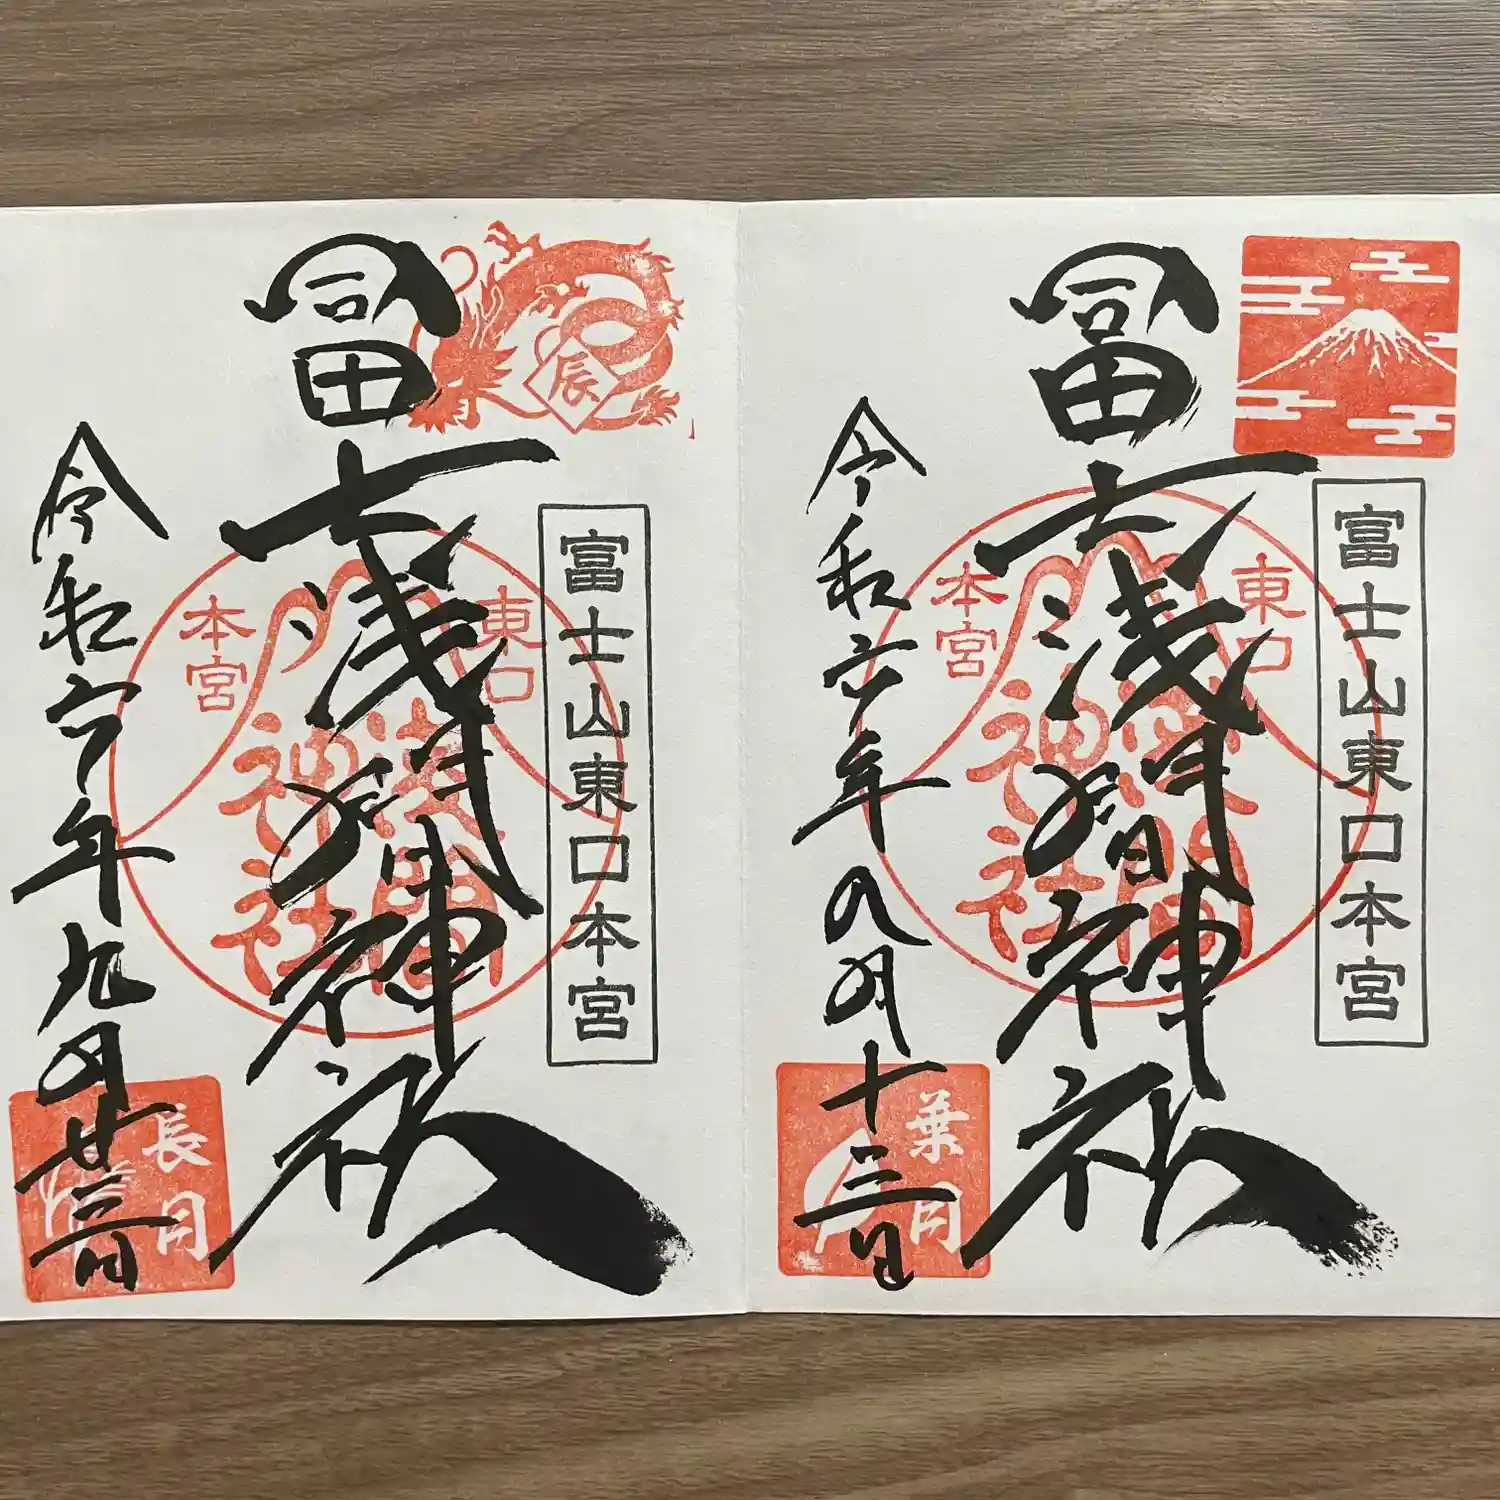 富士山東口本宮
冨士浅間神社
令和六年八月十三日
東口
本宮
浅間
神社
葉月
辰
富士山東口本宮
冨士浅間神社
令和六年九月廿三日
東口
本宮
浅間
神社
長月